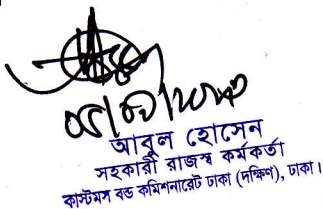 আবুল হোসেন
সহকারী রাজস্ব কর্মকর্তা
কাস্টমস বন্ড কমিশনারেট ঢাকা (দক্ষিণ), ঢাকা।